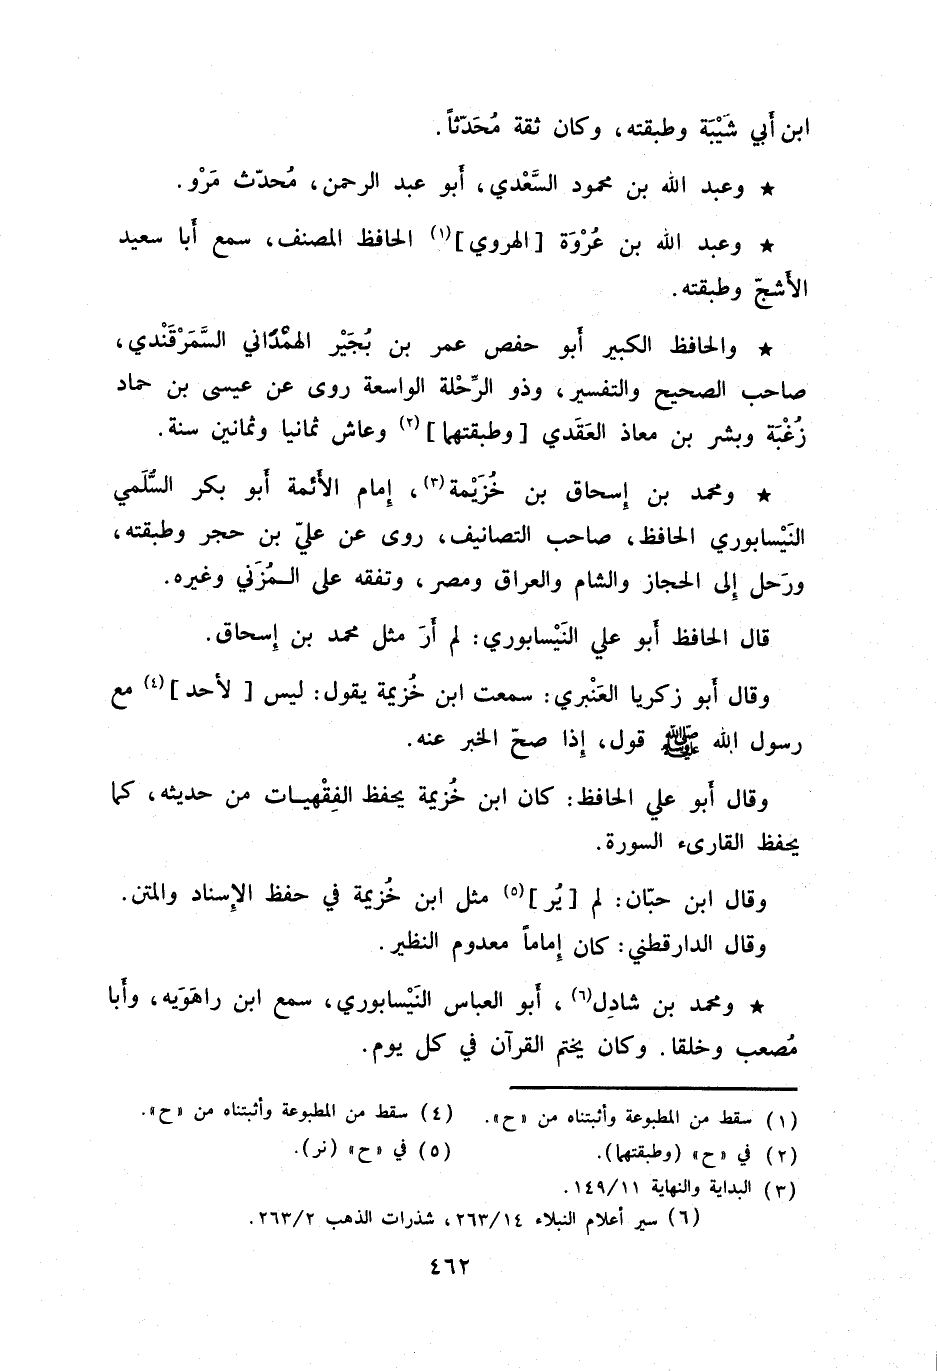 ابن أَبي شَيْبَة وطبقته، وكان ثقة مُحَدّثاً.
★ وعبد الله بن محمود السَّعْدي، أَبو عبد الرحمن، مُحدّث مَرْو.
★ وعبد الله بن عُرْوَة [الهروي](١) الحافظ المصنف، سمع أَبا سعيد
الأَشجّ وطبقته.
★ والحافظ الكبير أَبو حفص عمر بن بُجَيْر الهمْداني السَّمَرْقَنْدي،
صاحب الصحيح والتفسير، وذو الرِّحْلة الواسعة روى عن عيسى بن حماد
زُغْبَة وبشر بن معاذ العَقَدي [وطبقتهما](٢) وعاش ثمانيا وثمانين سنة.
★ ومحمد بن إِسحاق بن خُزَيْمة(٣)، إِمام الأَئمة أَبو بكر السُّلَمي
النَيْسابوري الحافظ، صاحب التصانيف، روى عن عليّ بن حجر وطبقته،
ورَحل إِلى الحجاز والشام والعراق ومصر، وتفقه على الـمُزَني وغيره.
قال الحافظ أَبو علي النَيْسابوري: لم أَرَ مثل محمد بن إِسحاق.
وقال أَبو زكريا العَنْبري: سمعت ابن خُزيمة يقول: ليس [لأحد](٤) مع
رسول الله ﷺ قول، إِذا صحّ الخبر عنه.
وقال أَبو علي الحافظ: كان ابن خُزيمة يحفظ الفِقْهيـات من حديثه، كما
يحفظ القارىء السورة.
وقال ابن حبّان: لم [يُر](٥) مثل ابن خُزيمة في حفظ الإِسناد والمتن.
وقال الدارقطني: كان إِماماً معدوم النظير.
★ ومحمد بن شادِل(٦)، أَبو العباس النَيْسابوري، سمع ابن راهَوَيه، وأَبا
مُصعب وخلقا. وكان يختم القرآن في كل يوم.
(١) سقط من المطبوعة وأثبتناه من «ح».
(٢) في «ح» (وطبقتهما).
(٣) البداية والنهاية ١٤٩/١١.
(٤) سقط من المطبوعة وأثبتناه من «ح».
(٥) في «ح» (نر).
(٦) سير أعلام النبلاء ٢٦٣/١٤، شذرات الذهب ٢٦٣/٢.
٤٦٢